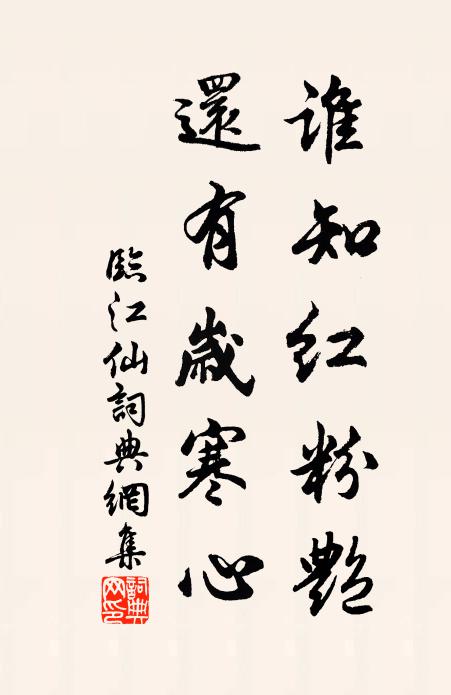 誰知红粉艷
還有歲寒心
臨江仙詞典網集
詞典网印